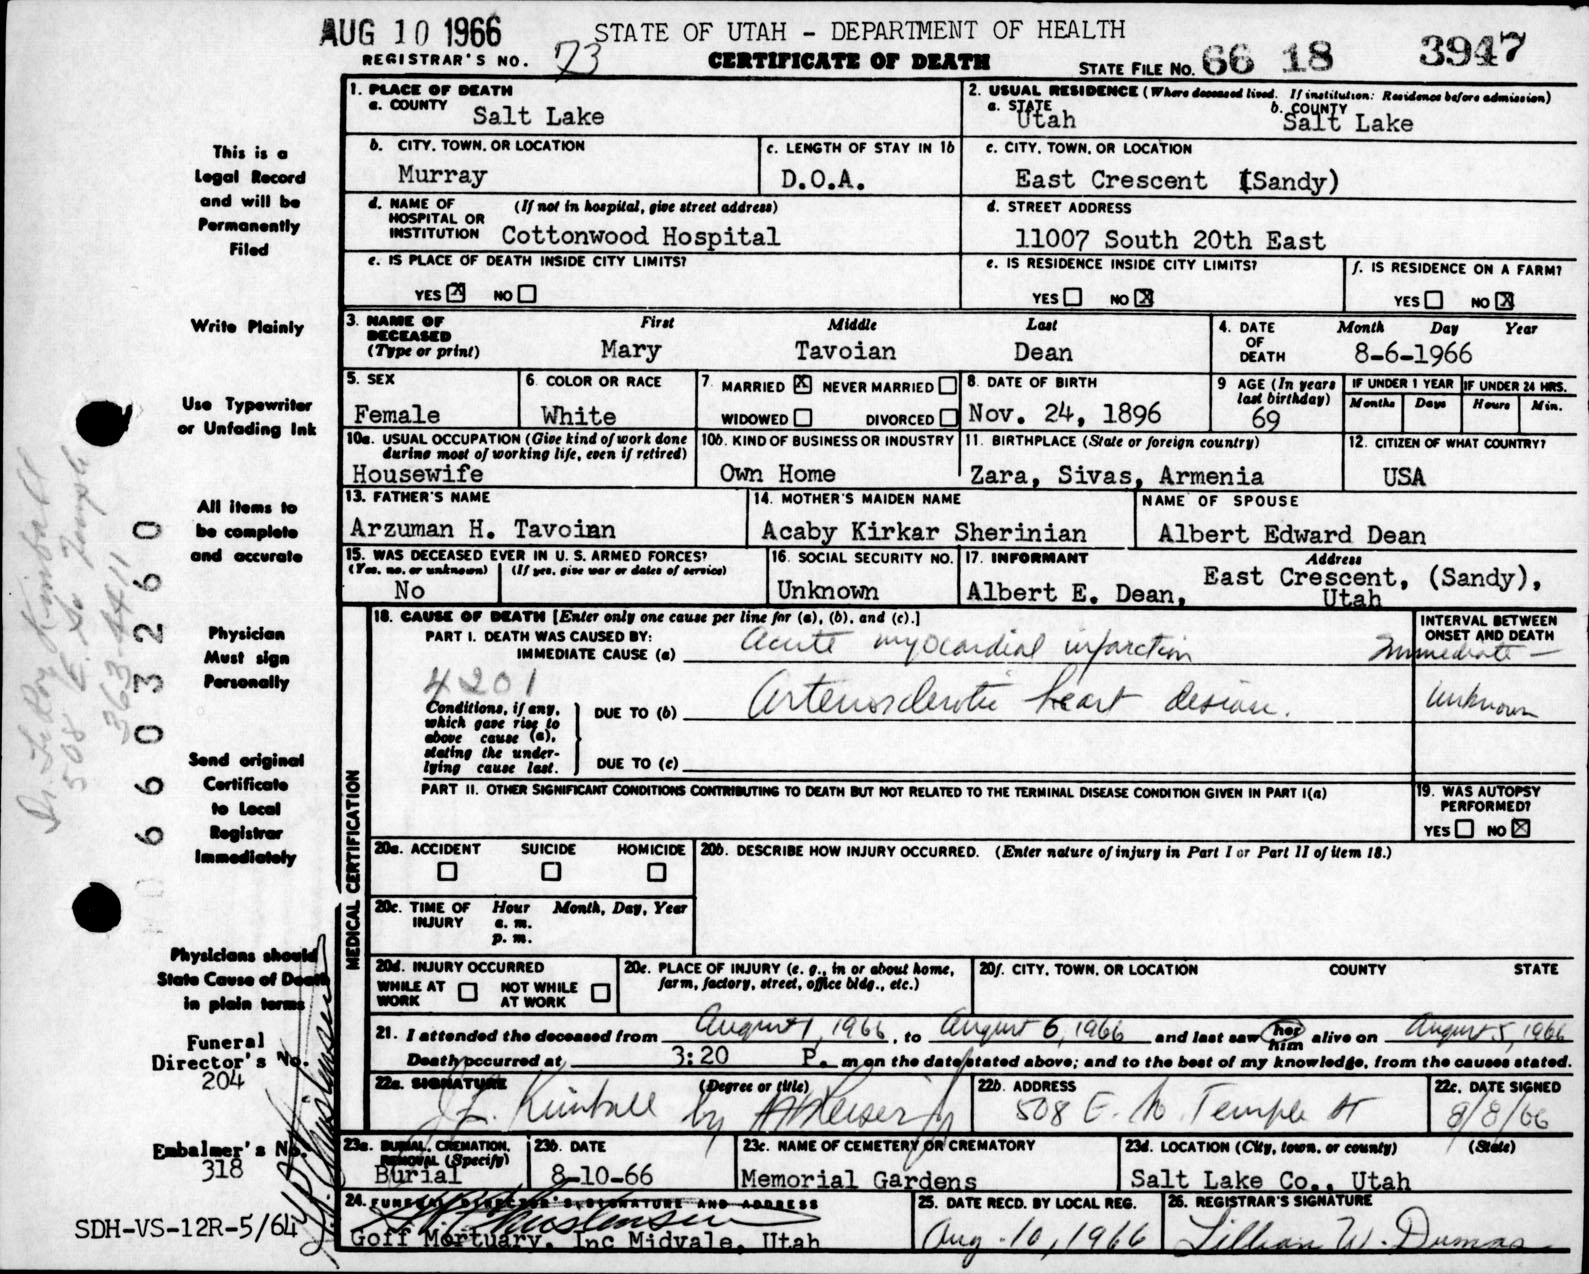 AUG 10 1966
STATE OF UTAH - DEPARTMENT OF HEALTH
REGISTRAR'S NO. 73
CERTIFICATE OF DEATH
STATE FILE NO. 66 18 3947
1. PLACE OF DEATH
a. COUNTY Salt Lake
2. USUAL RESIDENCE (Where deceased lived. If institution: Residence before admission)
a. STATE Utah b. COUNTY Salt Lake
b. CITY, TOWN, OR LOCATION Murray
c. LENGTH OF STAY IN 1b D.O.A.
c. CITY, TOWN, OR LOCATION
East Crescent (Sandy)
d. NAME OF HOSPITAL OR INSTITUTION (If not in hospital, give street address)
Cottonwood Hospital
d. STREET ADDRESS
11007 South 20th East
e. IS PLACE OF DEATH INSIDE CITY LIMITS?
YES X NO
e. IS RESIDENCE INSIDE CITY LIMITS?
YES NO X
f. IS RESIDENCE ON A FARM?
YES NO X
3. NAME OF DECEASED (Type or print)
First Middle Last
Mary Tavoian Dean
4. DATE OF DEATH Month Day Year
8-6-1966
5. SEX
Female
6. COLOR OR RACE
White
7. MARRIED X NEVER MARRIED
WIDOWED DIVORCED
8. DATE OF BIRTH
Nov. 24, 1896
9 AGE (In years last birthday)
69
IF UNDER 1 YEAR
Months Days
IF UNDER 24 HRS.
Hours Min.
10a. USUAL OCCUPATION (Give kind of work done during most of working life, even if retired)
Housewife
10b. KIND OF BUSINESS OR INDUSTRY
Own Home
11. BIRTHPLACE (State or foreign country)
Zara, Sivas, Armenia
12. CITIZEN OF WHAT COUNTRY?
USA
13. FATHER'S NAME
Arzuman H. Tavoian
14. MOTHER'S MAIDEN NAME
Acaby Kirkar Sherinian
NAME OF SPOUSE
Albert Edward Dean
15. WAS DECEASED EVER IN U. S. ARMED FORCES?
(Yes, no, or unknown) (If yes, give war or dates of service)
No
16. SOCIAL SECURITY NO.
Unknown
17. INFORMANT Address
Albert E. Dean, East Crescent, (Sandy), Utah
MEDICAL CERTIFICATION
18. CAUSE OF DEATH [Enter only one cause per line for (a), (b), and (c).]
INTERVAL BETWEEN ONSET AND DEATH
PART I. DEATH WAS CAUSED BY:
IMMEDIATE CAUSE (a) Acute myocardial infarction Immediate
4201
Conditions, if any, which gave rise to above cause (a), stating the underlying cause last.
DUE TO (b) Arteriosclerotic heart disease. Unknown
DUE TO (c)
PART II. OTHER SIGNIFICANT CONDITIONS CONTRIBUTING TO DEATH BUT NOT RELATED TO THE TERMINAL DISEASE CONDITION GIVEN IN PART I(a)
19. WAS AUTOPSY PERFORMED?
YES NO X
20a. ACCIDENT SUICIDE HOMICIDE
20b. DESCRIBE HOW INJURY OCCURRED. (Enter nature of injury in Part I or Part II of item 18.)
20c. TIME OF INJURY Hour Month, Day, Year
a. m.
p. m.
20d. INJURY OCCURRED
WHILE AT WORK NOT WHILE AT WORK
20e. PLACE OF INJURY (e. g., in or about home, farm, factory, street, office bldg., etc.)
20f. CITY, TOWN, OR LOCATION COUNTY STATE
21. I attended the deceased from August 1, 1966, to August 6, 1966 and last saw her him alive on August 5, 1966
Death occurred at 3:20 P. m on the date stated above; and to the best of my knowledge, from the causes stated.
22a. SIGNATURE (Degree or title)
Kimball by
22b. ADDRESS
508 E. So. Temple St
22c. DATE SIGNED
8/8/66
23a. BURIAL, CREMATION, REMOVAL (Specify)
Burial
23b. DATE
8-10-66
23c. NAME OF CEMETERY OR CREMATORY
Memorial Gardens
23d. LOCATION (City, town, or county) (State)
Salt Lake Co., Utah
24. FUNERAL DIRECTOR'S SIGNATURE AND ADDRESS
Goff Mortuary, Inc Midvale, Utah
25. DATE RECD. BY LOCAL REG.
Aug. 10, 1966
26. REGISTRAR'S SIGNATURE
Lillian W. Dumas
This is a
Legal Record
and will be
Permanently
Filed
Write Plainly
Use Typewriter
or Unfading Ink
All items to
be complete
and accurate
Physician
Must sign
Personally
Send original
Certificate
to Local
Registrar
Immediately
Physicians should
State Cause of Death
in plain terms
Funeral
Director's No.
204
Embalmer's No.
318
SDH-VS-12R-5/64
Dr. LeRoy Kimball
508 E. So Temple
363-4411
660003260